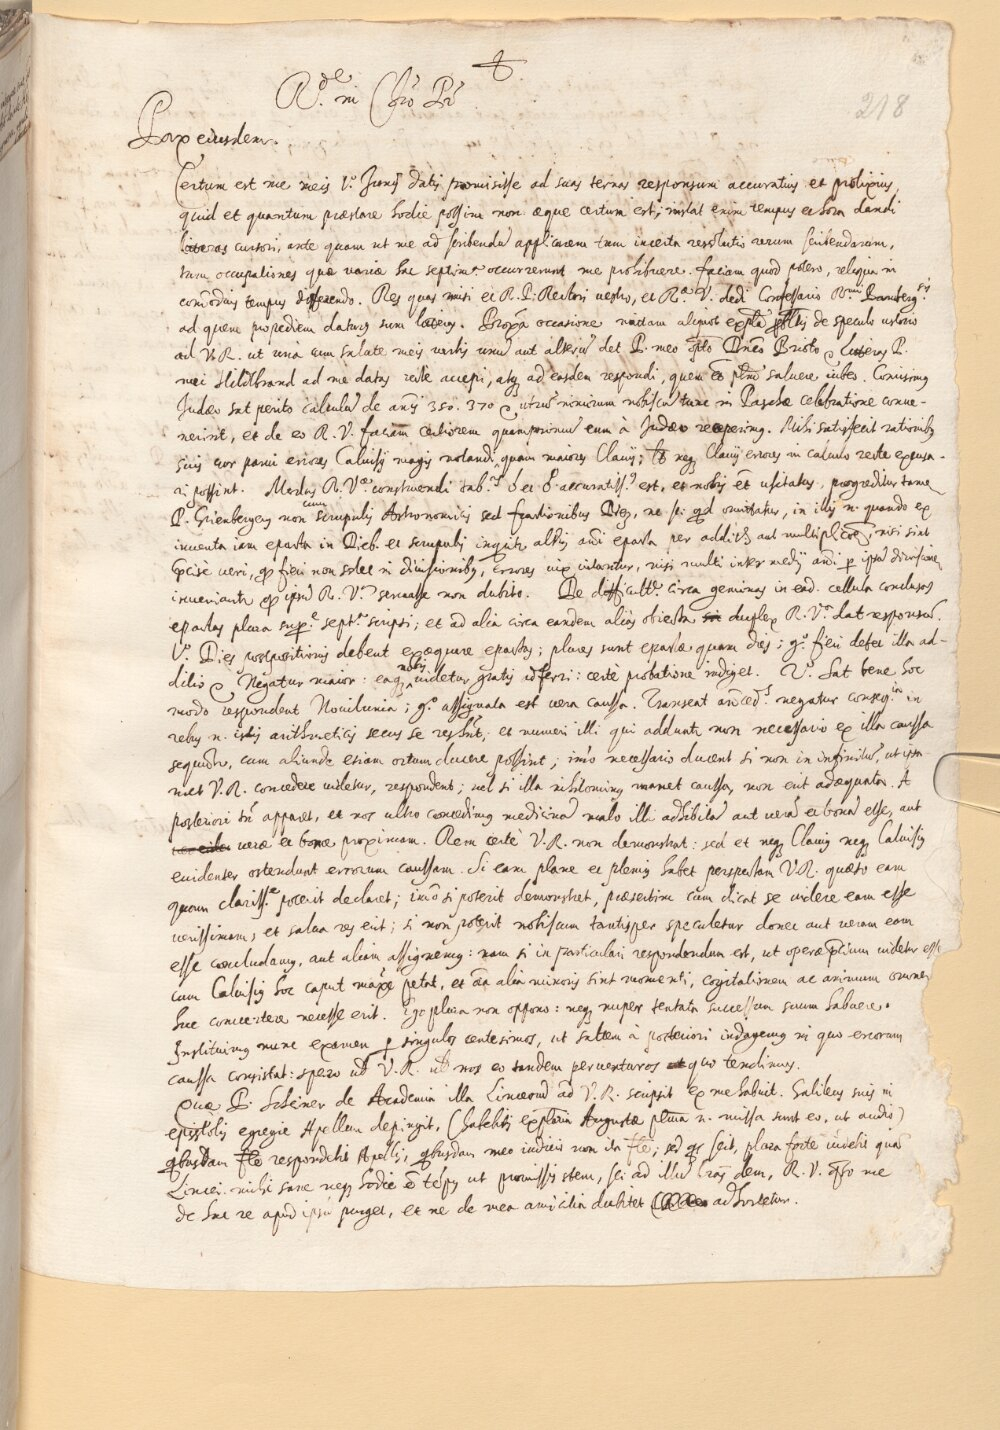 218
R.de in Chro Pr
Pax eiusdem.
Certum est me meis V.º Junij datis promisisse ad suas ternas responsum accuratius et prolixius,
quid et quantum præstare hodie possim non æque certum est; instat enim tempus et hora dandi
literas cursori, ante quam ut me ad scribendū applicarem tum incerta resolutio rerum scribendarum,
tum occupationes quæ variæ hac septim.ª occurrerunt me prohibuere. faciam quod potero, reliqua in
com̄odius tempus differendo. Res quas misi ei R. P. Rectori vestro, et R.ª V. dedi Confessario R.mi Bamberg.sis
ad quem propediem daturus sum literas. Proxª occasione mittam aliquot expl̄a de speculo ustorio
ad V.R. ut una cum salute meis verbis unū aut alterū det P. meo Dno Bristo. Literas P.
mei Hildbrand ad me datas recte accepi, atq; ad easdem respondi, quem salvere iubeo. Comisimus
Judæo sat perito calculū de añis 350. 370 utrū nimirum nobiscū tunc in Paschæ celebratione conve-
nerint, et de eo R. V. faciam certiorem quamprimum eum à Judæo recepimus. Mihi satisfecit rationibus
suis cur parui errores Calvisij magis notandi quam maiores Clauij; neq; Clauij errores in calculo recte excusa-
ri possint. Modus R. Væ construendi tab.s accuratiss.s est, et nobis et usitatus, progreditur tamen
P. Grienbergerus non cum scrupulis Astronomicis sed fractionibus, ne si qd omittatur, in illis n. quando ex
inventa iam epacta in Dieb. et scrupulis inquir. alterius añi epacta per addit. aut multiplicoem, nisi sint
præcise veri, qd fieri non solet in divisionibus, errores vix vitantur, nisi multi intermedij añi p ipsā divisionem
inveniantr qd ipsū R. V.m servasse non dubito. De difficultte circa geminas in ead. cellula conclusas
epactas plura sup. sept. scripsi; et ad alia circa eandem alias obiecta duplex R. V.ª dat responsū.
V.º Dies postpositionis debent exæquare epactas; plures sunt epactæ quam dies; g.º fieri debet illa ad-
ditio. Negatur maior: eaq; nobis videtur gratis asseri: certè probatione indiget. Sat bene hoc
modo respondent Novilunia; g.º assignata est vera caussa. Transeat anteced.s negatur conseq.tia in
rebus n. istis arithmeticis secus se res hnt, et numeri illi qui addunt non necessario ex illa caussa
sequātr, cum aliunde etiam ortum ducere possint; imò necessario ducent si non in infinitū, ut ipsa-
met V. R. concedere videtur, respondent; vel si illa nihilominus manet caussa, non erit adæquata. A
posteriori tñ apparet, et nos ultro concedimus medicinā malo illi adhibitā aut verā et bonā esse, aut
veræ et bonæ proximam. Rem certè V. R. non demonstrat: sed et neq; Clavius neq; Calvisius
evidenter ostendunt errorum caussam. Si eam plane et plenius habet perspectam V. R. quæso eam
quam clarisse poterit declaret; imò si poterit demonstret, præsertim cum dicat se videre eam esse
verissimam, et salva res erit; si non poterit nobiscum tantisper speculetur donec aut veram eam
esse concludamus, aut aliam assignemus: nam si in particulari respondendum est, ut operæprecium videtur esse
cum Calvisius hoc caput maxe petat, et oia alia minoris sint momenti, cogitationem ac animum omnem
huc convertere necesse erit. Ego plura non oppono: neq; nuper tentata successum suum habuere.
Instituimus nunc examen p singulos centesimos, ut saltem à posteriori indagemus in quo errorum
caussa consistat: spero ut V. R. nos eo tandem perventuros quo tendimus.
Quæ P. Scheiner de Academia illa Linceorū ad V. R. scripsit ex me habuit. Galileus suis in
epistolis egregie Apellem depingit, (habebitis explaria Augustæ plura n. missa sunt eo, ut audio)
qbusdam fte respondebit Apelles, qbusdam meo iudicio non ita fte; sed qs scit, plura forte videbit quā
Lincei. mihi sane neq; hodie ē tēpus ut promissis stem, sci ad illū lrās dem, R. V. qso me
de hac re apud ipsū purget, et ne de mea amicitia dubitet adhortetur.